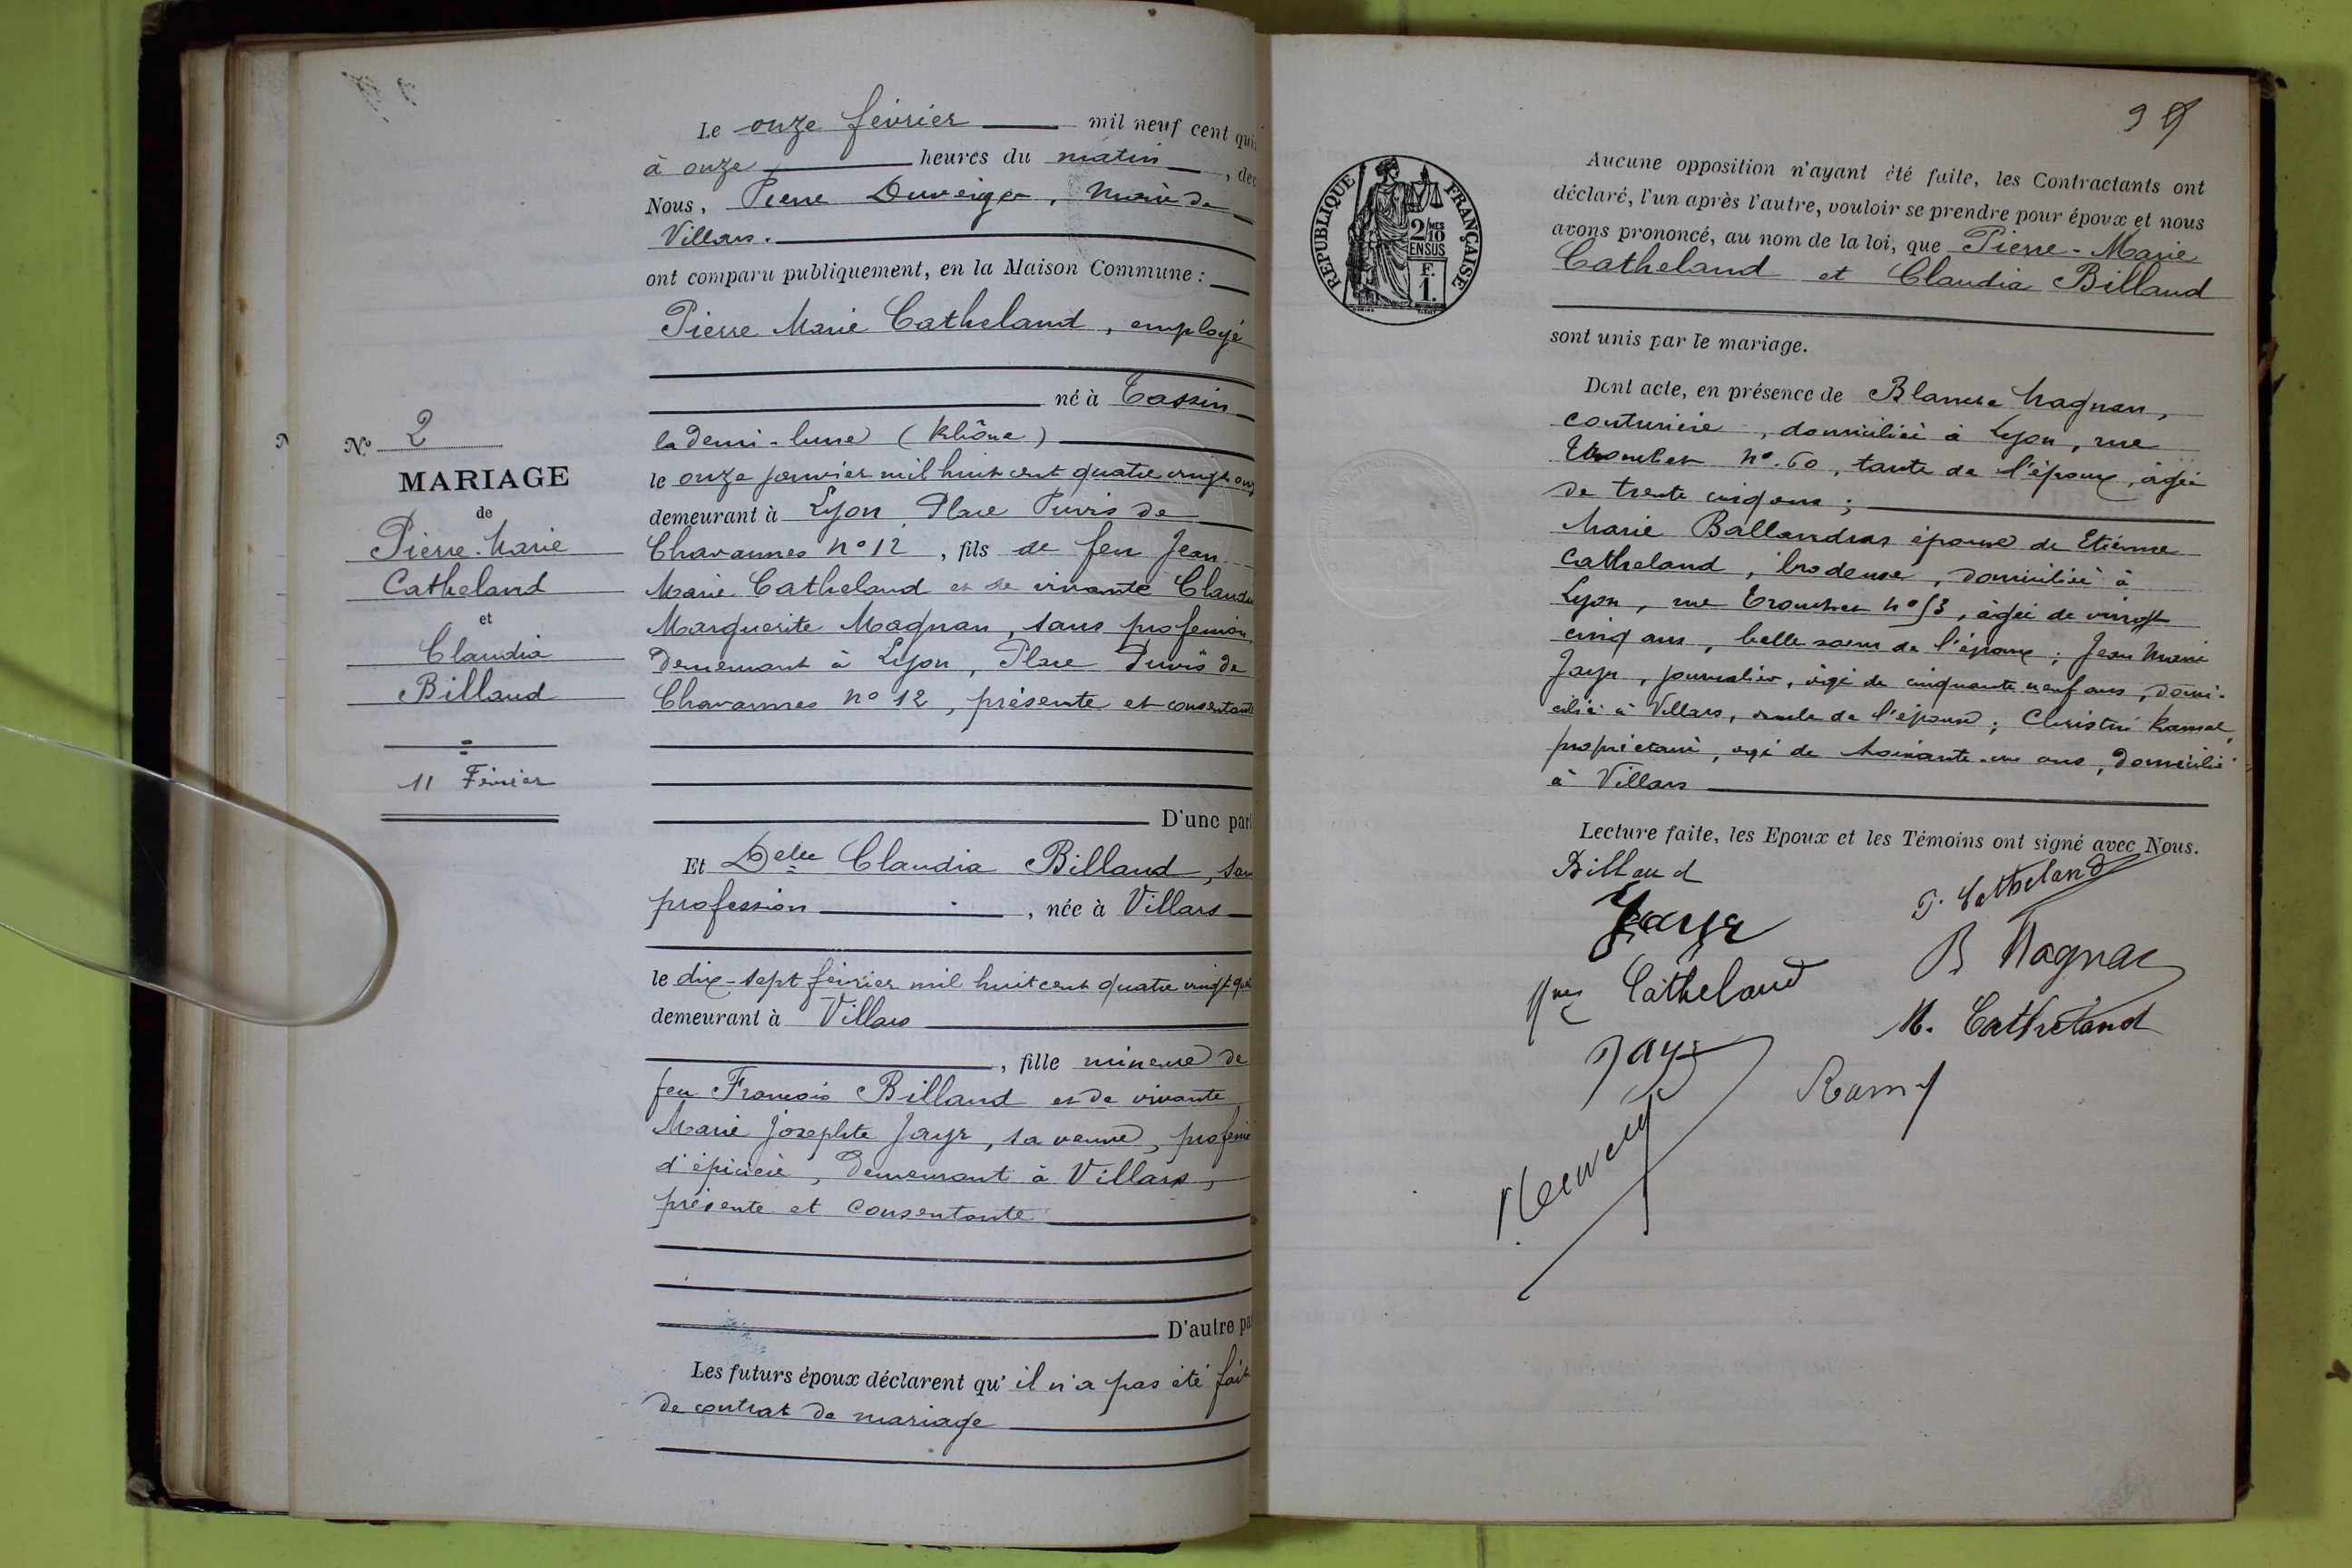 Le onze février mil neuf cent qui
à onze heures du matin, de
Nous, Pierre Duverger, Maire de
Villars.
ont comparu publiquement, en la Maison Commune :
Pierre Marie Catheland, employé
né à Tassin
la demi-lune (Rhône)
le onze janvier mil huit cent quatre vingt onz
demeurant à Lyon Place Puvis de
Chavannes n° 12, fils de feu Jean
Marie Catheland et de vivante Claudi
Marguerite Magnan, sans profession
demeurant à Lyon, Place Puvis de
Chavannes n° 12, présente et consentante
D'une part
Et Delle Claudia Billaud, san
profession, née à Villars
le dix-sept février mil huit cent quatre vingt
demeurant à Villars
, fille mineure de
feu François Billaud et de vivante
Marie Josephte Jayr, sa veuve, profession
d'épicière, demeurant à Villars,
présente et consentante
D'autre pa
Les futurs époux déclarent qu'il n'a pas été fait
de contrat de mariage
N° 2
MARIAGE
de
Pierre-Marie
Catheland
et
Claudia
Billaud
11 Février
9
RÉPUBLIQUE FRANÇAISE
2/10 MES
EN SUS
F.
1.
Aucune opposition n'ayant été faite, les Contractants ont
déclaré, l'un après l'autre, vouloir se prendre pour époux et nous
avons prononcé, au nom de la loi, que Pierre-Marie
Catheland et Claudia Billaud
sont unis par le mariage.
Dont acte, en présence de Blanche Magnan,
couturière, domiciliée à Lyon, rue
Tronchet n°. 60, tante de l'époux, âgée
de trente cinq ans ;
Marie Ballandras épouse de Etienne
Catheland, brodeuse, domiciliée à
Lyon, rue Tronchet n° 53, âgée de vingt
cinq ans, belle soeur de l'époux ; Jean Marie
Jayr, journalier, âgé de cinquante neuf ans, domi-
cilié à Villars, oncle de l'épouse ; Christin Ramel,
propriétaire, âgé de soixante-un ans, domicilié
à Villars
Lecture faite, les Epoux et les Témoins ont signé avec Nous.
Billaud
P. Catheland
Jayr
B Magnan
Catheland
M. Catheland
Jayr
Ramel